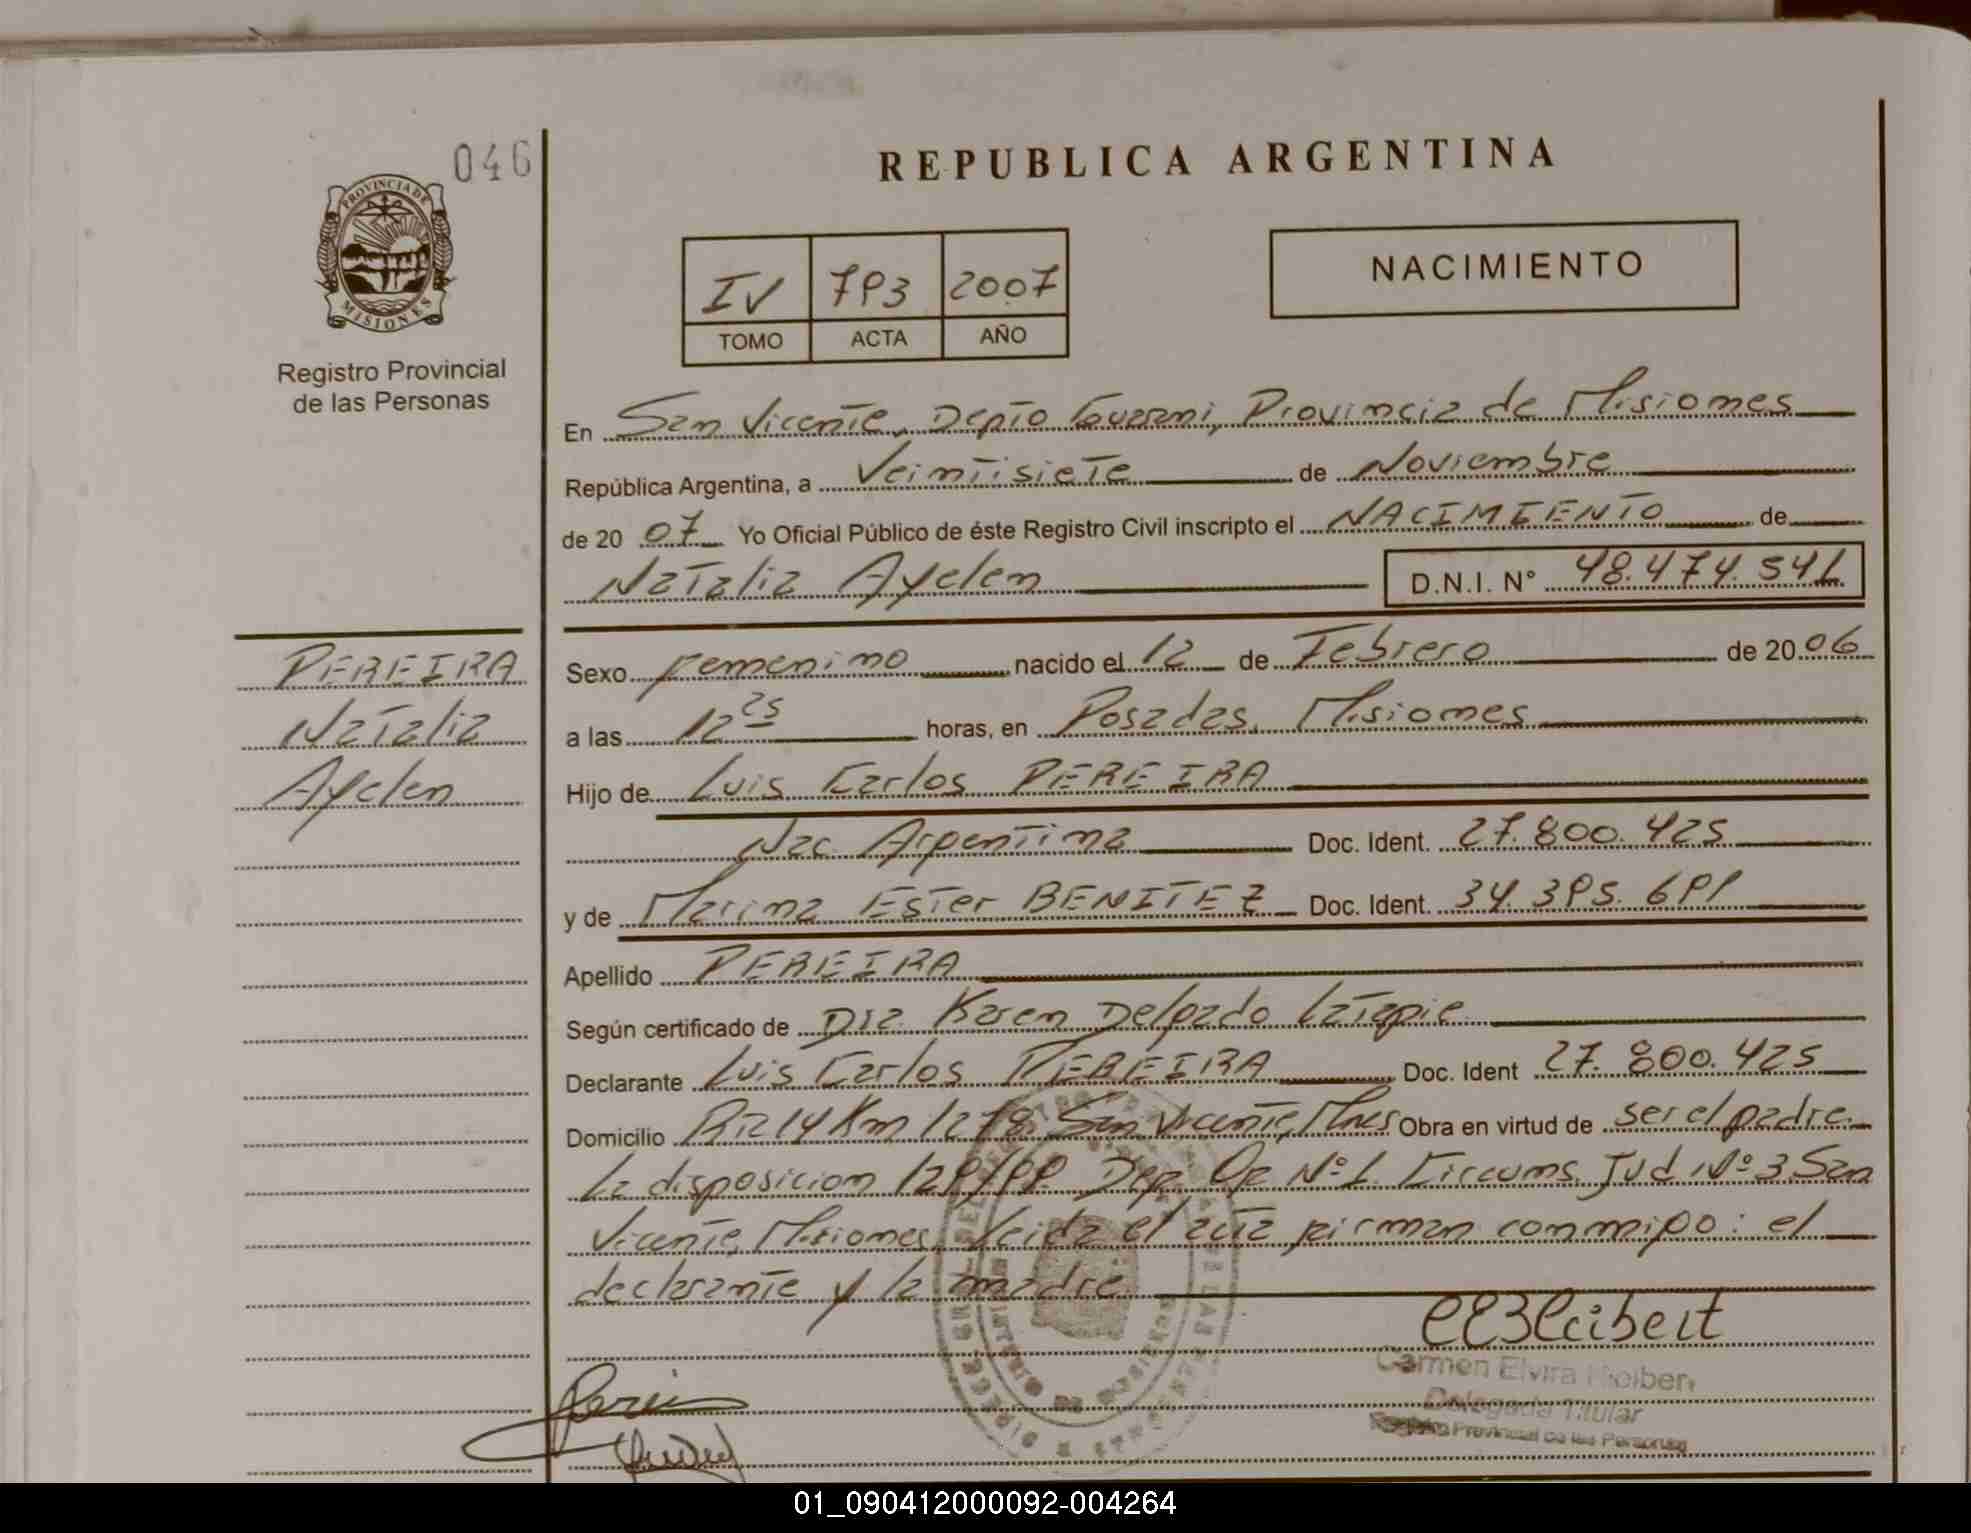 046
PROVINCIA DE
MISIONES
Registro Provincial
de las Personas
REPUBLICA ARGENTINA
NACIMIENTO
IV 793 2007
TOMO ACTA AÑO
En San Vicente, Depto Guarani, Provincia de Misiones
República Argentina, a Veintisiete de Noviembre
de 20 07 Yo Oficial Público de éste Registro Civil inscripto el NACIMIENTO de
Natalia Ayelen D.N.I. N° 48.474.541
PEREIRA
Natalia
Ayelen
Sexo femenino nacido el 12 de Febrero de 20 06
a las 12 25 horas, en Posadas, Misiones
Hijo de Luis Carlos PEREIRA
Nac Argentina Doc. Ident. 27.800.425
y de Marina Ester BENITEZ Doc. Ident. 34.395.691
Apellido PEREIRA
Según certificado de Dra. Karen Delgado Latapie
Declarante Luis Carlos PEREIRA Doc. Ident 27.800.425
Domicilio Km 1278 San Vicente, Mnes Obra en virtud de ser el padre
La disposicion 129/99 Dep. N° 1. Circuns. Jud N° 3 San
Vicente, Misiones. Leida el acta firman conmigo: el
declarante y la madre
Carmen Elvira
Delegada Titular
Registro Provincial de las Personas
01_090412000092-004264